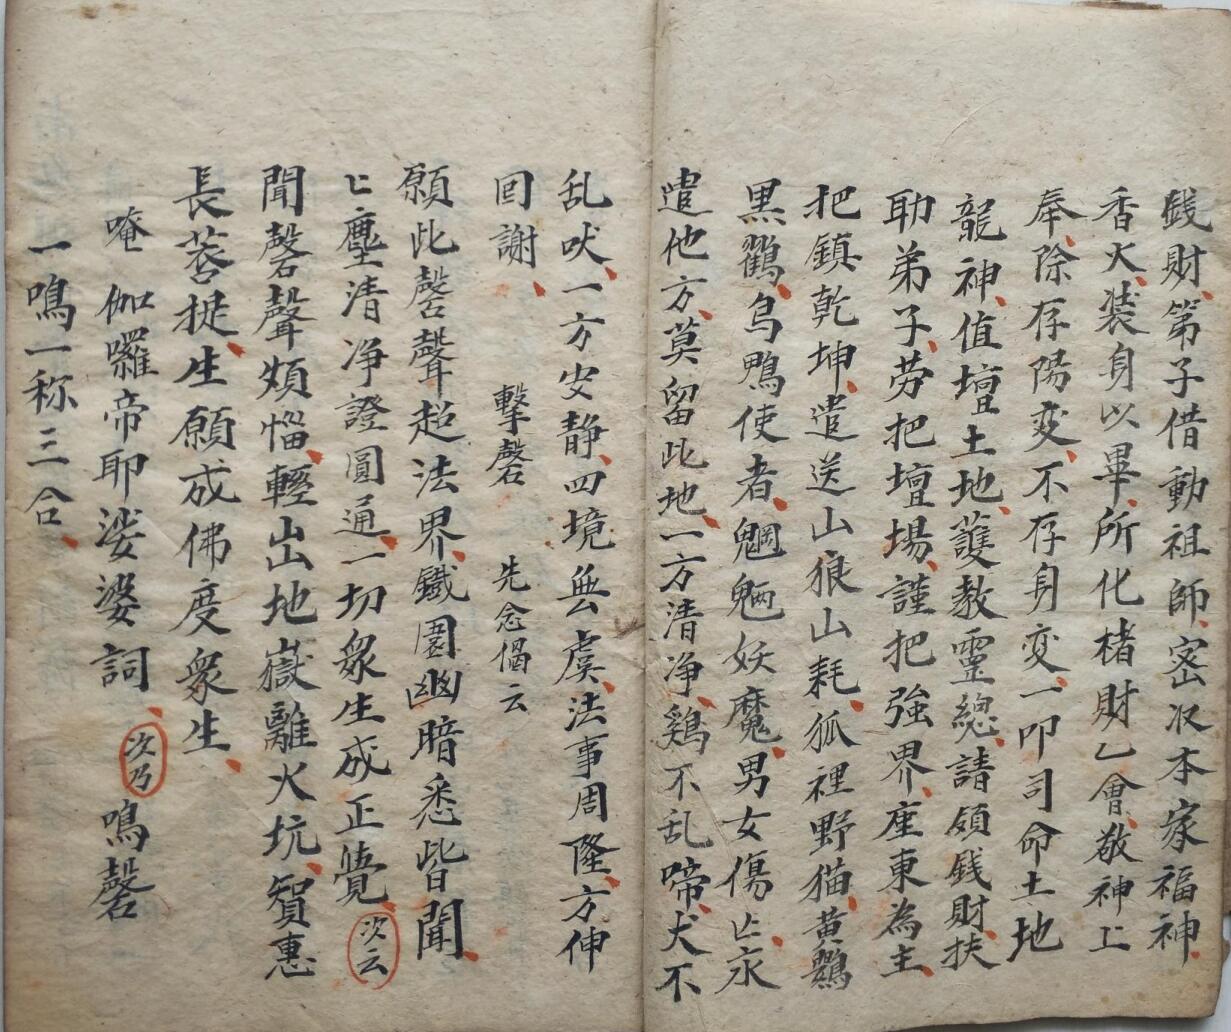 錢財、第子借動祖師、密収本家福神、
香火、装身以畢、所化楮財乙會、敬神上
奉、除存陽变、不存身变、一叩司命土地
龍神、值壇土地、護教靈總、請領錢財、扶
助弟子、劳把壇場、謹把強界、座東為主、
把鎮乾坤、遣送山狼山耗、狐裡野猫、黄鷄
黒鸛、烏鴨使者、魍魎妖魔、男女傷亡、永
遣他方、莫留此地、一方清净、鷄不乱啼、犬不
乱吠、一方安静、四境無虞、法事周隆、方伸
回謝、　擊磬　先念偈云
願此磬聲超法界、鐵圍幽暗悉皆聞、
匕塵清净證圓通、一切衆生成正覺、次云
聞磬聲煩惱、輕山地嶽離火坑、智惠
長菩提、生願成佛度衆生、
唵　伽囉帝耶娑婆訶、次乃　鳴磬
一鳴一称三合、